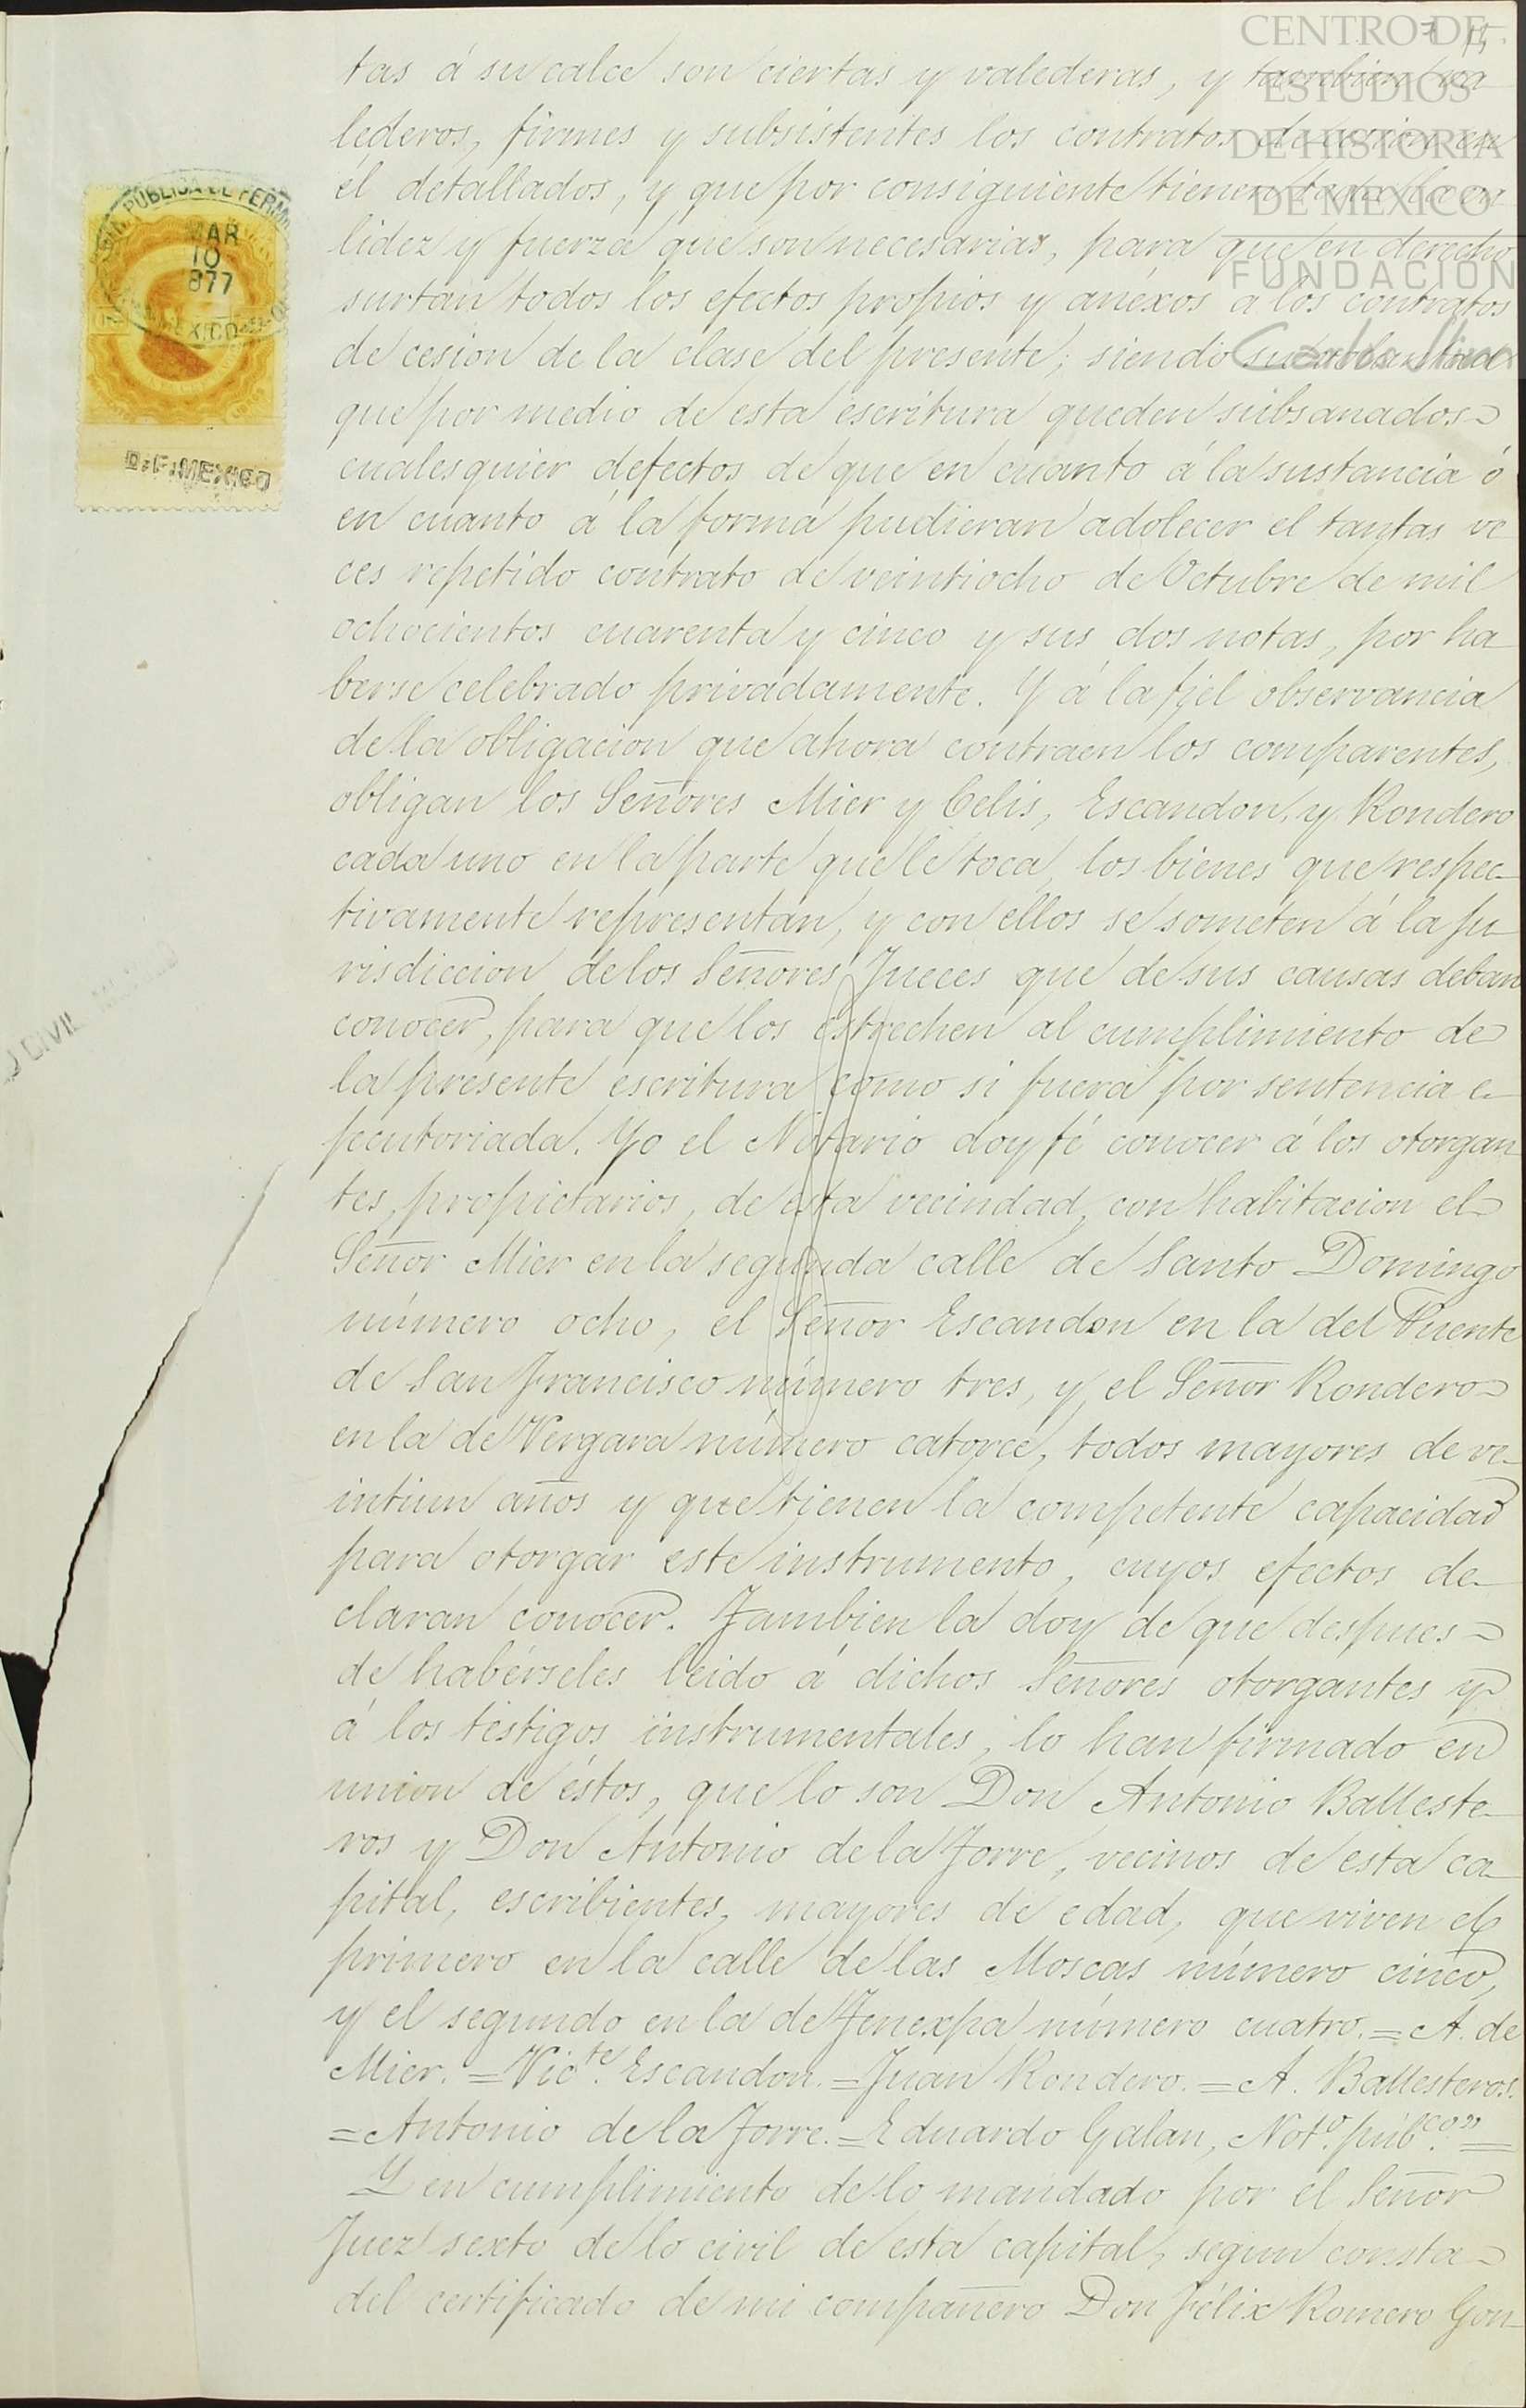 7 15.
tas á su calce son ciertas y valederas, y tambien va
lederos, firmes y subsistentes los contratos de cesion en
él detallados, y que por consiguiente tienen toda la va
lidez y fuerza que son necesarias, para que en derecho
surtan todos los efectos propios y anexos a los contratos
de cesion de la clase del presente; siendo su voluntad
que por medio de esta escritura queden subsanados
cualesquier defectos de que en cuanto á la sustancia ó
en cuanto á la forma pudieran adolecer el tantas ve
ces repetido contrato de veintiocho de Octubre de mil
ochocientos cuarenta y cinco y sus dos notas, por ha
berse celebrado privadamente. Y á la fiel observancia
de la obligacion que ahora contraen los comparentes,
obligan los Señores Mier y Celis, Escandon, y Rondero
cada uno en la parte que le toca, los bienes que respec-
tivamente representan, y con ellos se someten á la ju
risdiccion de los Señores Jueces que de sus causas deban
conocer, para que los estrechen al cumplimiento de
la presente escritura como si fuera por sentencia e-
jecutoriada. Yo el Notario doy fé conocer á los otorgan
tes, propietarios, de esta vecindad, con habitacion el
Señor Mier en la segunda calle de Santo Domingo
número ocho, el Señor Escandon en la del Puente
de San Francisco número tres, y el Señor Rondero
en la de Vergara número catorce, todos mayores de ve-
intiun años y que tienen la competente capacidad
para otorgar este instrumento, cuyos efectos de-
claran conocer. Tambien la doy de que despues
de habérseles leido á dichos Señores otorgantes y
á los testigos instrumentales, lo han firmado en
union de éstos, que lo son Don Antonio Balleste-
ros y Don Antonio de la Torre, vecinos de esta ca-
pital, escribientes, mayores de edad, que viven el
primero en la calle de las Moscas número cinco,
y el segundo en la de Tenexpa número cuatro.=A. de
Mier.=Vic.te Escandon.=Juan Rondero.=A. Ballesteros.
=Antonio de la Torre.=Eduardo Galan, Not.o púb.co"=
Y en cumplimiento de lo mandado por el Señor
Juez sexto de lo civil de esta capital, segun consta
del certificado de mi compañero Don Félix Romero Gon-
PUBLICA DE FERM
MAR
10
877
MEXICO
D.F. MEXICO
O CIVIL MEXICO
CENTRO DE
ESTUDIOS
DE HISTORIA
DE MEXICO
FUNDACIÓN
Carlos Slim